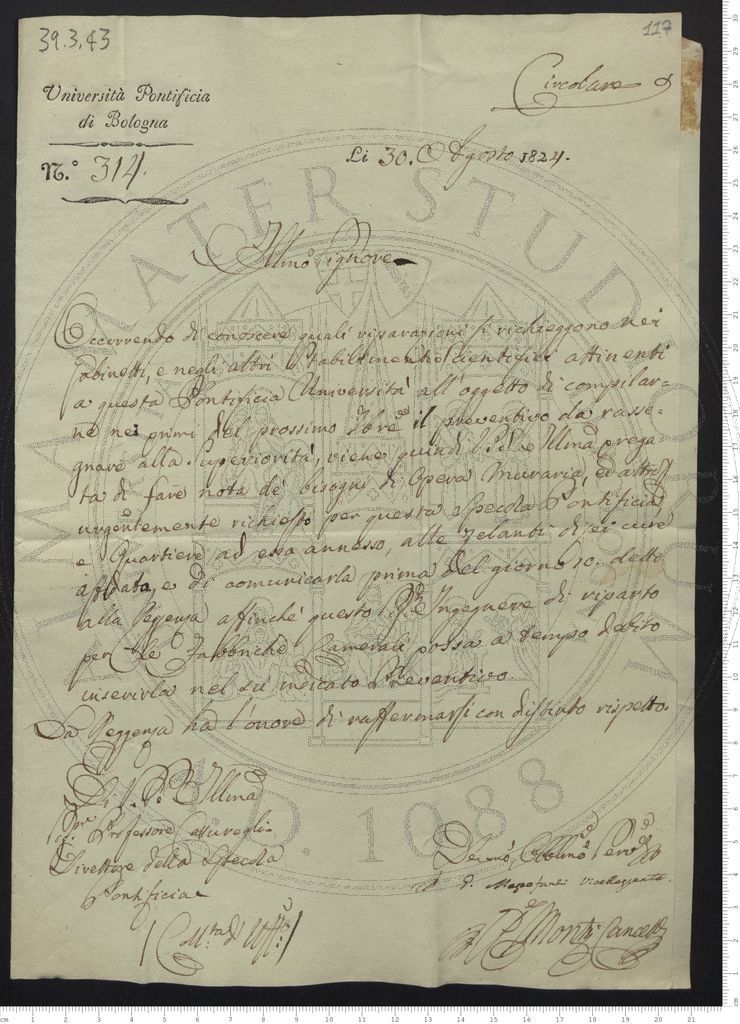 39.3.43
117
Circolare
Università Pontificia
di Bologna
N.° 314.
Li 30. Agosto 1824.
Illmo Signore
Occorrendo di conoscere quali riparazioni si richieggono nei
Gabinetti, e negli altri Stabilimenti Scientifici attinenti
a questa Pontificia Università all'oggetto di compilar=
ne nei primi del prossimo 7bre il preventivo da rasse=
gnare alla Superiorità, viene quindi V. S. Illma prega
ta di fare nota de' bisogni di Opera Muraria, ed altro
urgentemente richiesti per questa Specola Pontificia
e Quartiere ad essa annesso, alle zelanti di lei cure
affidata, e di comunicarla prima del giorno 10. detto
alla Reggenza affinchè questo Sig.e Ingegnere di riparto
per le Fabbriche Camerali possa a tempo debito
inserirla nel su indicato Preventivo.
La Reggenza ha l'onore di raffermarsi con distinto rispetto.
Di V. S. Illma
Sig. Professore Caturegli
Direttore della Specola
Pontificia
Devmo Obblmo Servo
Mezzofanti Vicereggente
Monti Cancell
ALMA MATER STUDIORUM
A.D. 1088
cm 1 2 3 4 5 6 7 8 9 10 11 12 13 14 15 16 17 18 19 20 21